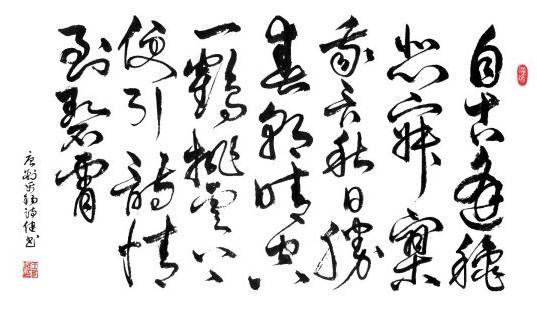 自古逢秋
悲寂寥
我言秋日勝
春朝晴空
一鶴排雲上
便引詩情
到碧霄
唐劉禹錫詩健书